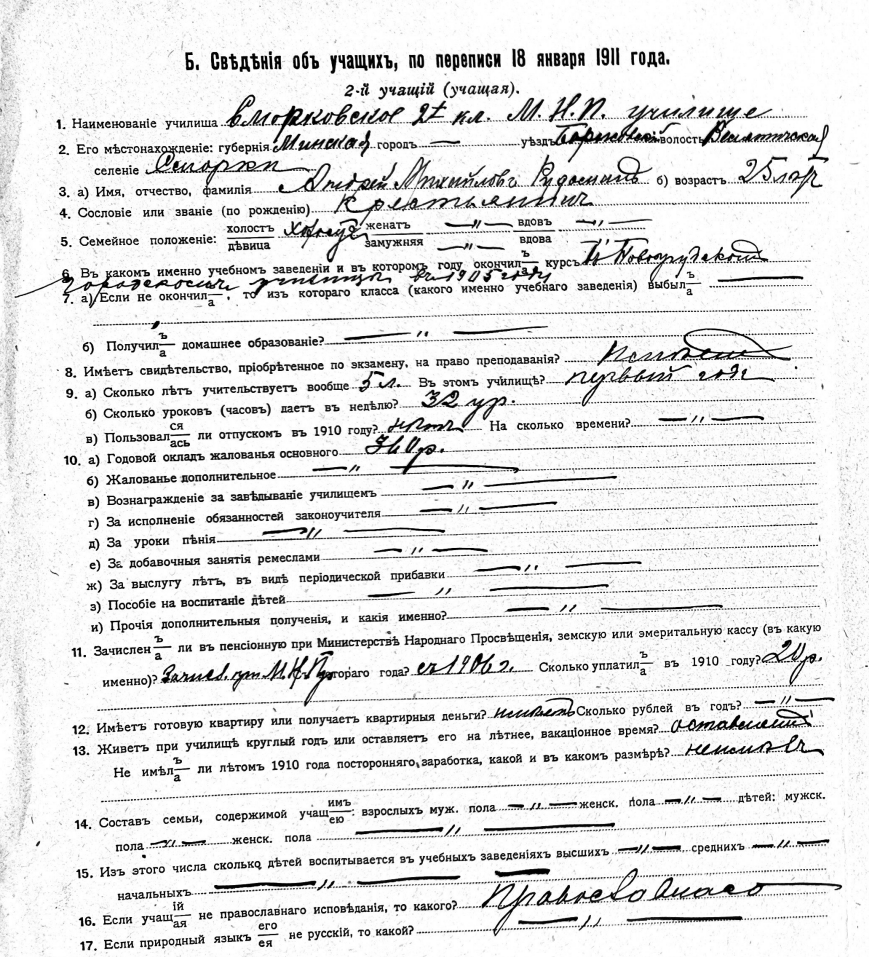 Б. Свѣдѣнія объ учащихъ, по переписи 18 января 1911 года.
2-й учащій (учащая).
1. Наименованіе училища Сморковское 2х кл. М. Н. П. училище
2. Его мѣстонахожденіе: губернія Минская городъ — уѣздъ Борисовскій волость
селеніе Сморки
3. а) Имя, отчество, фамилія Андрей Михайловъ б) возрастъ 25 лѣтъ
4. Сословіе или званіе (по рожденію) Крестьянинъ
5. Семейное положеніе: холостъ/дѣвица холостъ женатъ/замужняя — „ — вдовъ/вдова — „ —
6. Въ какомъ именно учебномъ заведеніи и въ которомъ году окончил ъ/а курсъ Въ Новогрудскомъ
городскомъ училищѣ въ 1905 году
7. а) Если не окончил ъ/а, то изъ котораго класса (какого именно учебнаго заведенія) выбыл ъ/а —
б) Получил ъ/а домашнее образованіе? — „ —
8. Имѣетъ свидѣтельство, пріобрѣтенное по экзамену, на право преподаванія?
9. а) Сколько лѣтъ учительствуетъ вообще 5 л. Въ этомъ училищѣ? первый годъ
б) Сколько уроковъ (часовъ) даетъ въ недѣлю? 32 ур.
в) Пользовал ся/ась ли отпускомъ въ 1910 году? нѣтъ На сколько времени? — „ —
10. а) Годовой окладъ жалованья основного 360 р.
б) Жалованье дополнительное — „ —
в) Вознагражденіе за завѣдываніе училищемъ — „ —
г) За исполненіе обязанностей законоучителя — „ —
д) За уроки пѣнія — „ —
е) За добавочныя занятія ремеслами — „ —
ж) За выслугу лѣтъ, въ видѣ періодической прибавки — „ —
з) Пособіе на воспитаніе дѣтей — „ —
и) Прочія дополнительныя полученія, и какія именно? — „ —
11. Зачислен ъ/а ли въ пенсіонную при Министерствѣ Народнаго Просвѣщенія, земскую или эмеритальную кассу (въ какую
именно)? Зачисл. при М. Н. Пр. котораго года? съ 1906 г. Сколько уплатил ъ/а въ 1910 году? 20 р.
12. Имѣетъ готовую квартиру или получаетъ квартирныя деньги? неимѣетъ Сколько рублей въ годъ? — „ —
13. Живетъ при училищѣ круглый годъ или оставляетъ его на лѣтнее, вакаціонное время? оставляетъ
Не имѣл ъ/а ли лѣтомъ 1910 года посторонняго заработка, какой и въ какомъ размѣрѣ? неимѣлъ
14. Составъ семьи, содержимой учащ имъ/ею: взрослыхъ муж. пола — „ — женск. пола — „ — дѣтей: мужск.
пола — „ — женск. пола — „ —
15. Изъ этого числа сколько дѣтей воспитывается въ учебныхъ заведеніяхъ высшихъ — „ — среднихъ — „ —
начальныхъ — „ —
16. Если учащ ій/ая не православнаго исповѣданія, то какого? Православнаго
17. Если природный языкъ его/ея не русскій, то какой? — „ —